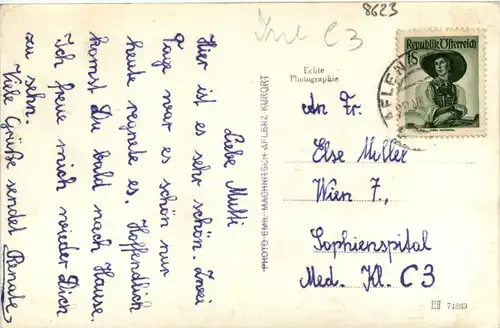 Liebe Mutti
Hier ist es sehr schön. Zwei
Tage war es schön nur
heute regnete es. Hoffendlich
komst Du bald nach Hause.
Ich freue mich wieder Dich
zu sehn.
Viele Grüße sendet Renate
8623
C3
Echte
Photographie
Republik Österreich
1S
AFLENZ
PHOTO EMIL MACHNITSCH-AFLENZ-KURORT
An Fr.
Else Müller
Wien 7.,
Sophienspital
Med. Kl. C3
74869